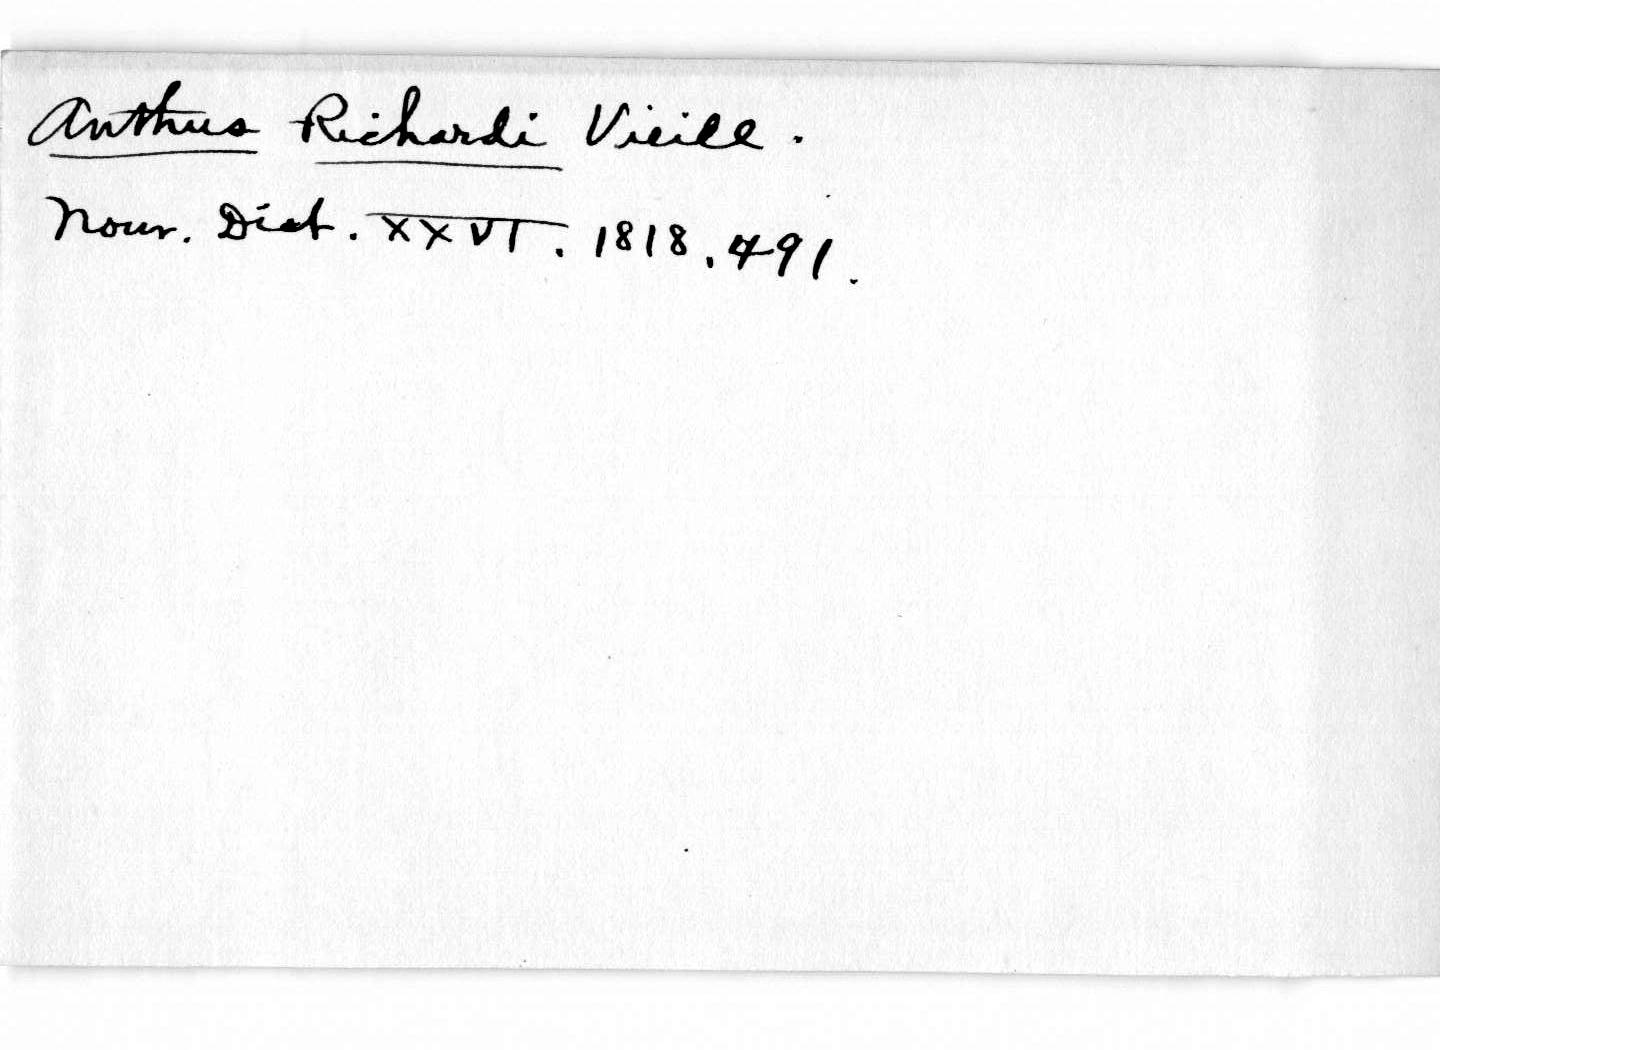 Anthus Richardi Vieill.
Nouv. Dict. XXVI. 1818. 491.